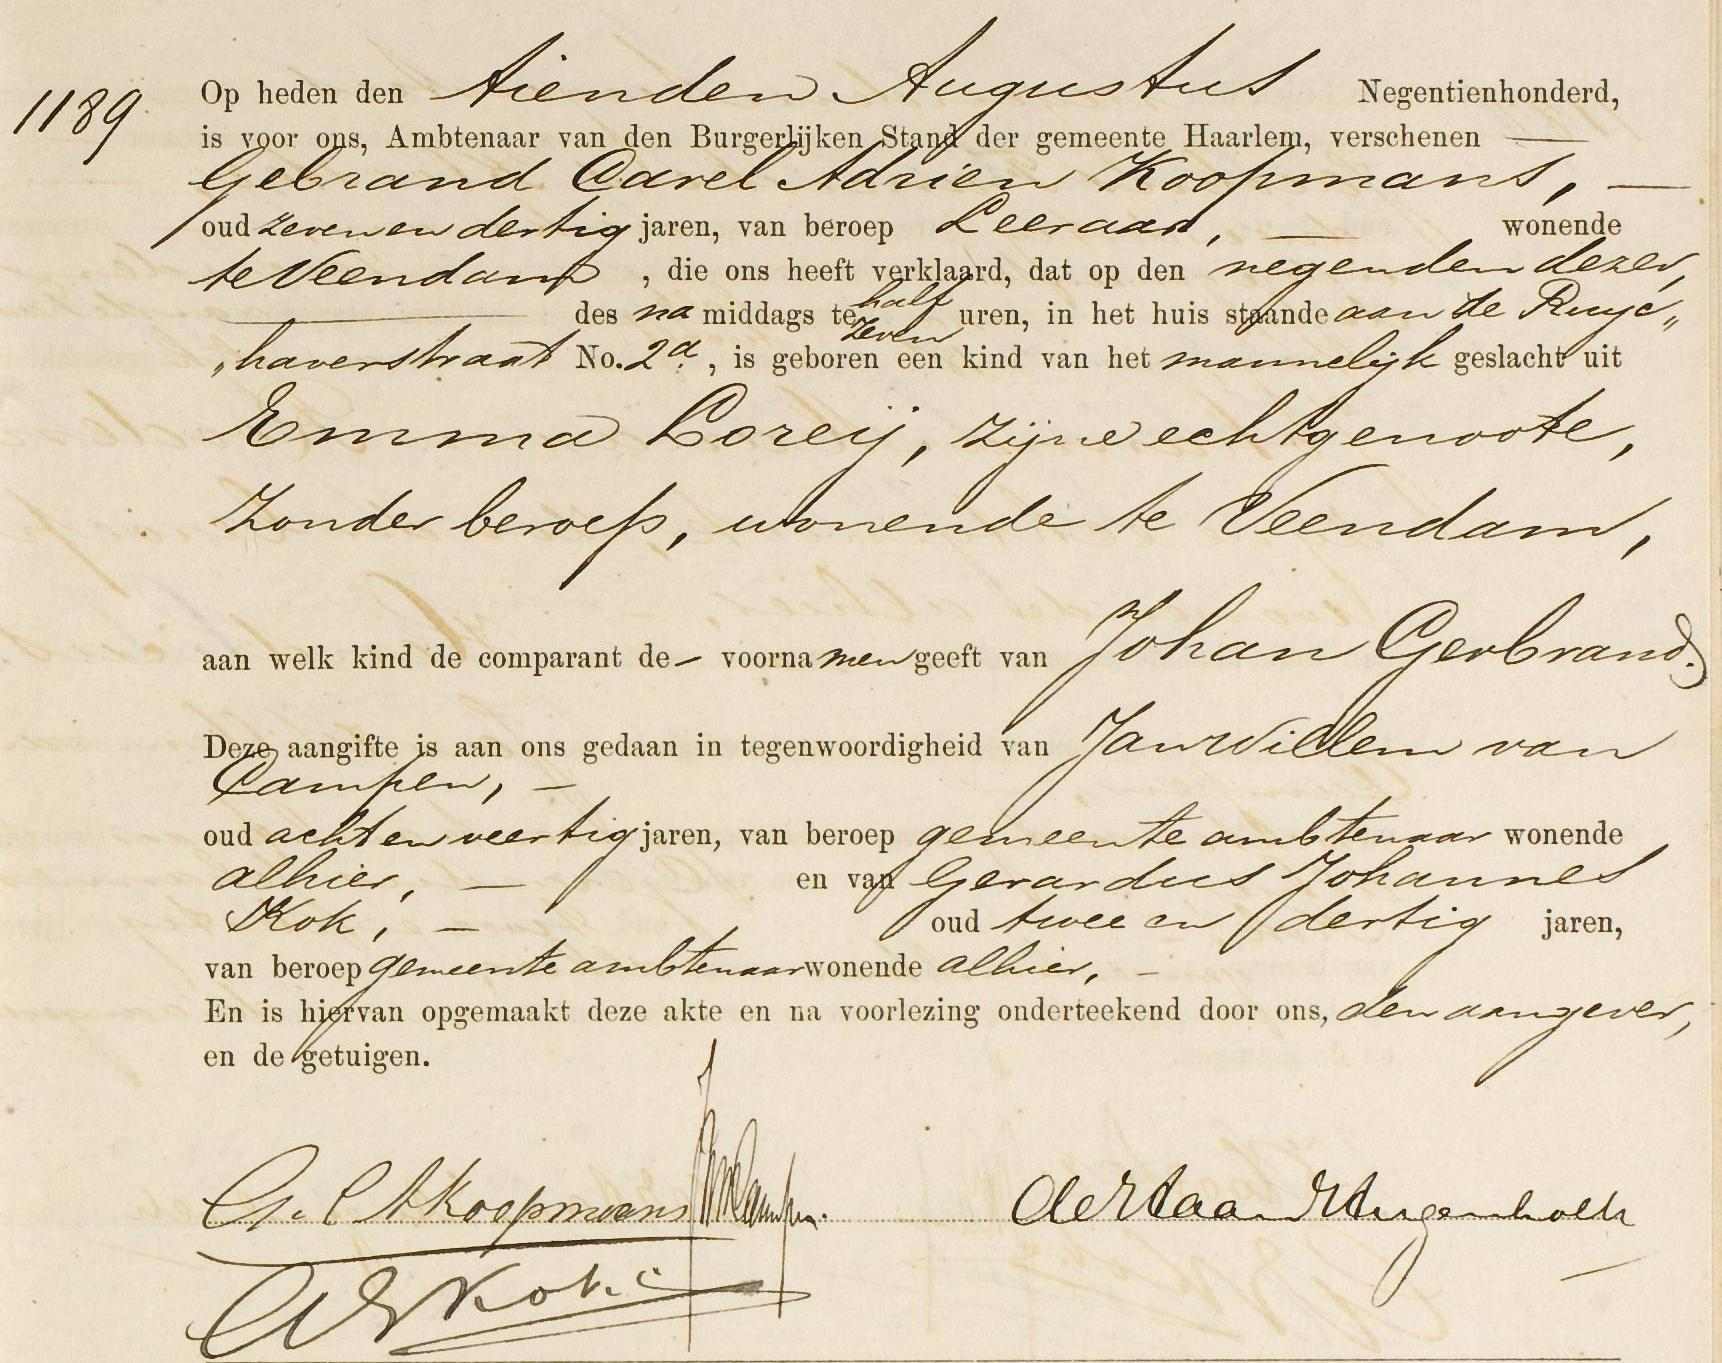 1189
Op heden den tienden Augustus Negentienhonderd,
is voor ons, Ambtenaar van den Burgerlijken Stand der gemeente Haarlem, verschenen —
Gebrand Carel Adrien Koopmans, —
oud zeven en dertig jaren, van beroep Leeraar, — wonende
te Veendam , die ons heeft verklaard, dat op den negenden dezer,
— des na middags te half zeven uren, in het huis staande aan de Ruyc„
„haverstraat No. 2a. , is geboren een kind van het mannelijk geslacht uit
Emma Loreij, zijne echtgenoote,
zonder beroep, wonende te Veendam,
aan welk kind de comparant de – voornamen geeft van Johan Gerbrand.
Deze aangifte is aan ons gedaan in tegenwoordigheid van Jan Willem van
Campen, –
oud acht en veertig jaren, van beroep gemeente ambtenaar wonende
alhier, — en van Gerardus Johannes
Kok, – oud twee en dertig jaren,
van beroep gemeente ambtenaar wonende alhier, –
En is hiervan opgemaakt deze akte en na voorlezing onderteekend door ons, den aangever,
en de getuigen.
G. C A Koopmans JWvCampen. de Haan Hugenholtz
GJKok